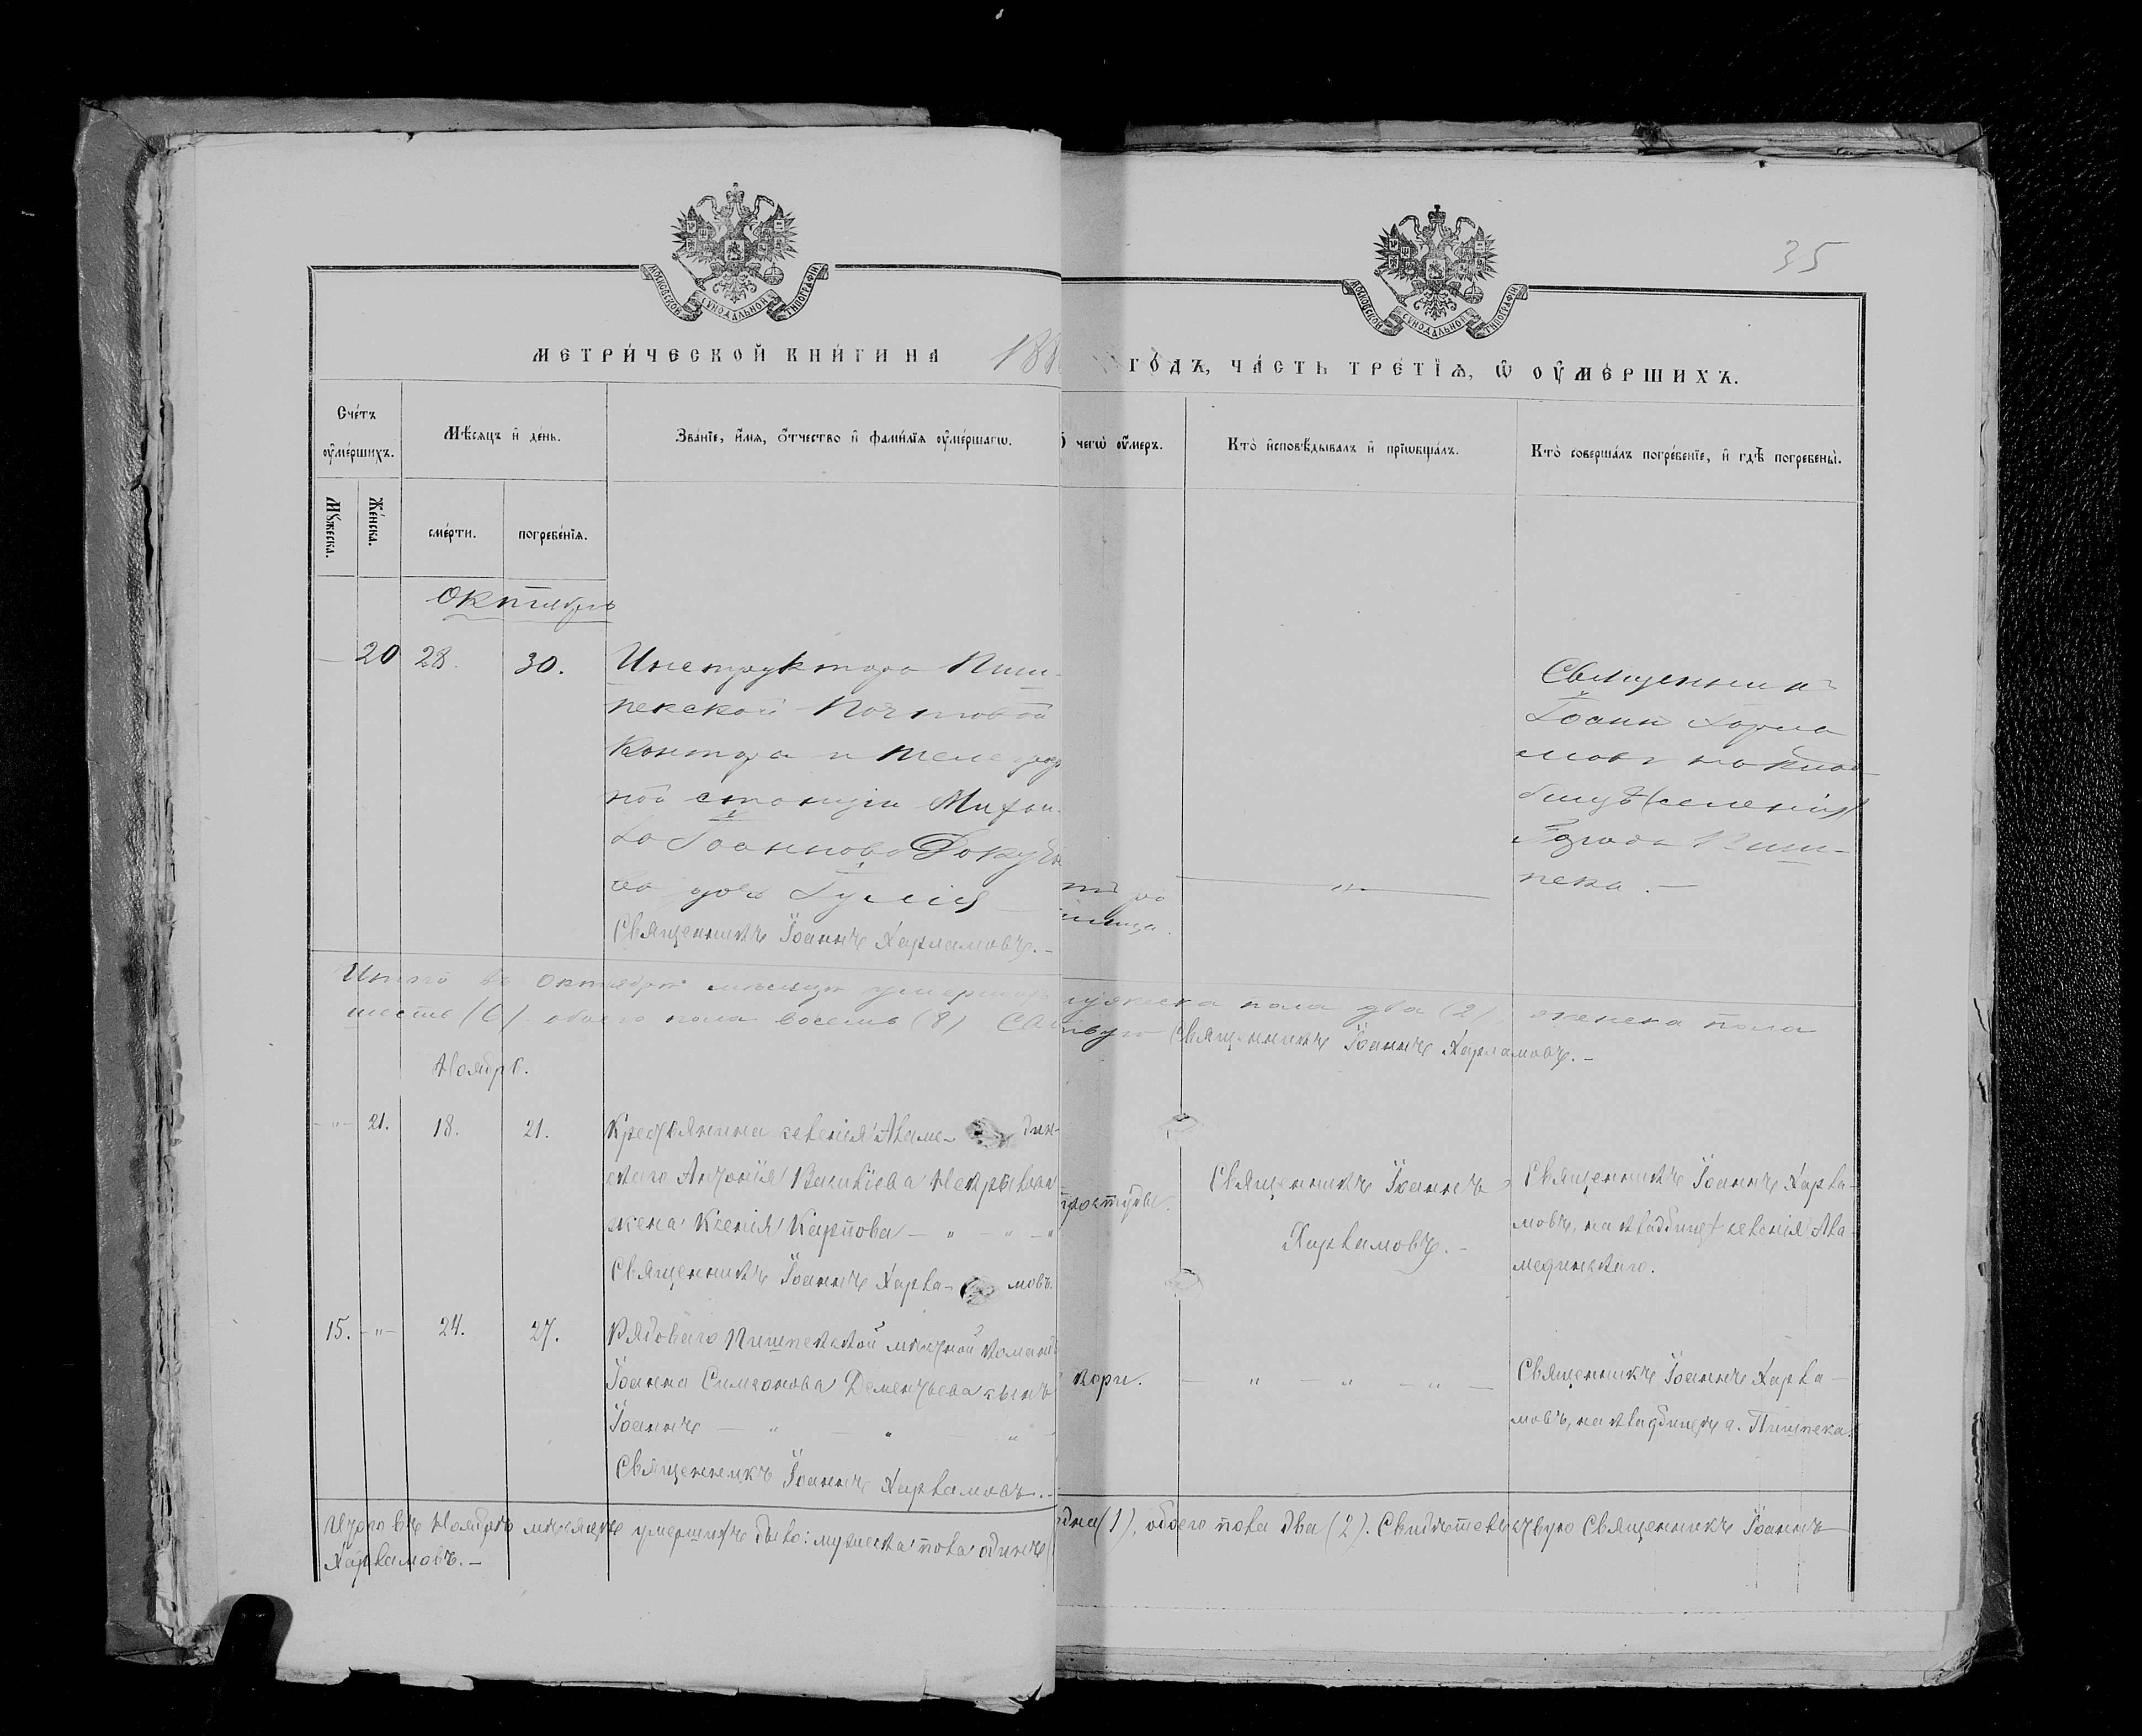 35
МОСКОВСКОЙ СУНОДАЛЬНОЙ ТИПОГРАФІИ
МОСКОВСКОЙ СУНОДАЛЬНОЙ ТИПОГРАФІИ
МЕТРИ́ЧЕСКОЙ КНИ́ГИ НА 188
ГО́ДЪ, ЧА́СТЬ ТРЕ́ТЇѦ, Ѿ ОУМЕ́РШИХЪ.
Сче́тъ оумершихъ.
Мѣ́сяцъ и де́нь.
Зва́нїе, и́мѧ, о́тчество и фами́лїѧ оуме́ршагѡ.
чегѡ̀ оу́меръ.
Кто̀ исповѣ́дывалъ и прїѡбща́лъ.
Кто̀ соверша́лъ погребе́нїе, и гдѣ̀ погребены̀.
Мꙋ́жеска.
Же́нска.
сме́рти.
погребе́нїѧ.
Октябрь
20 28. 30. Инструктора Пиш-
пекской Почтовой
Конторы и Телеграф
ной станціи Михаи-
ла Іоаннова
дочь
Священникъ Іоаннъ Харламовъ.-
Священникъ
Іоаннъ Харла
мовъ на клад
бищѣ селенія
Города Пиш-
пека.-
Итого въ Октябрѣ мѣсяцѣ умершихъ мужеска пола два (2), женска пола
шесть (6) обоего пола восемь (8) Священникъ Іоаннъ Харламовъ.-
Ноябрь.
-"- 21. 18. 21. Крестьянина селенія Аламе- дин-
скаго Антонія
жена Ксенія Карпова - " - " - "
Священникъ Іоаннъ Харла- мовъ.
простуды.
Священникъ Іоаннъ
Харламовъ.-
Священникъ Іоаннъ Харла-
мовъ, на кладбищѣ селенія Ала-
мединскаго.
15. -"- 24. 27. Рядоваго Пишпекской мѣстной команды
Іоанна Симеонова Дементьева сынъ
Іоаннъ - " - " - "
Священникъ Іоаннъ Харламовъ.-
кори.
- " - " - " -
Священникъ Іоаннъ Харла-
мовъ, на кладбищѣ г. Пишпека.
Итого въ Ноябрѣ мѣсяцѣ умершихъ было: мужеска пола одинъ дна (1), обоего пола два (2). Свидѣтельствую Священникъ Іоаннъ
Харламовъ.-